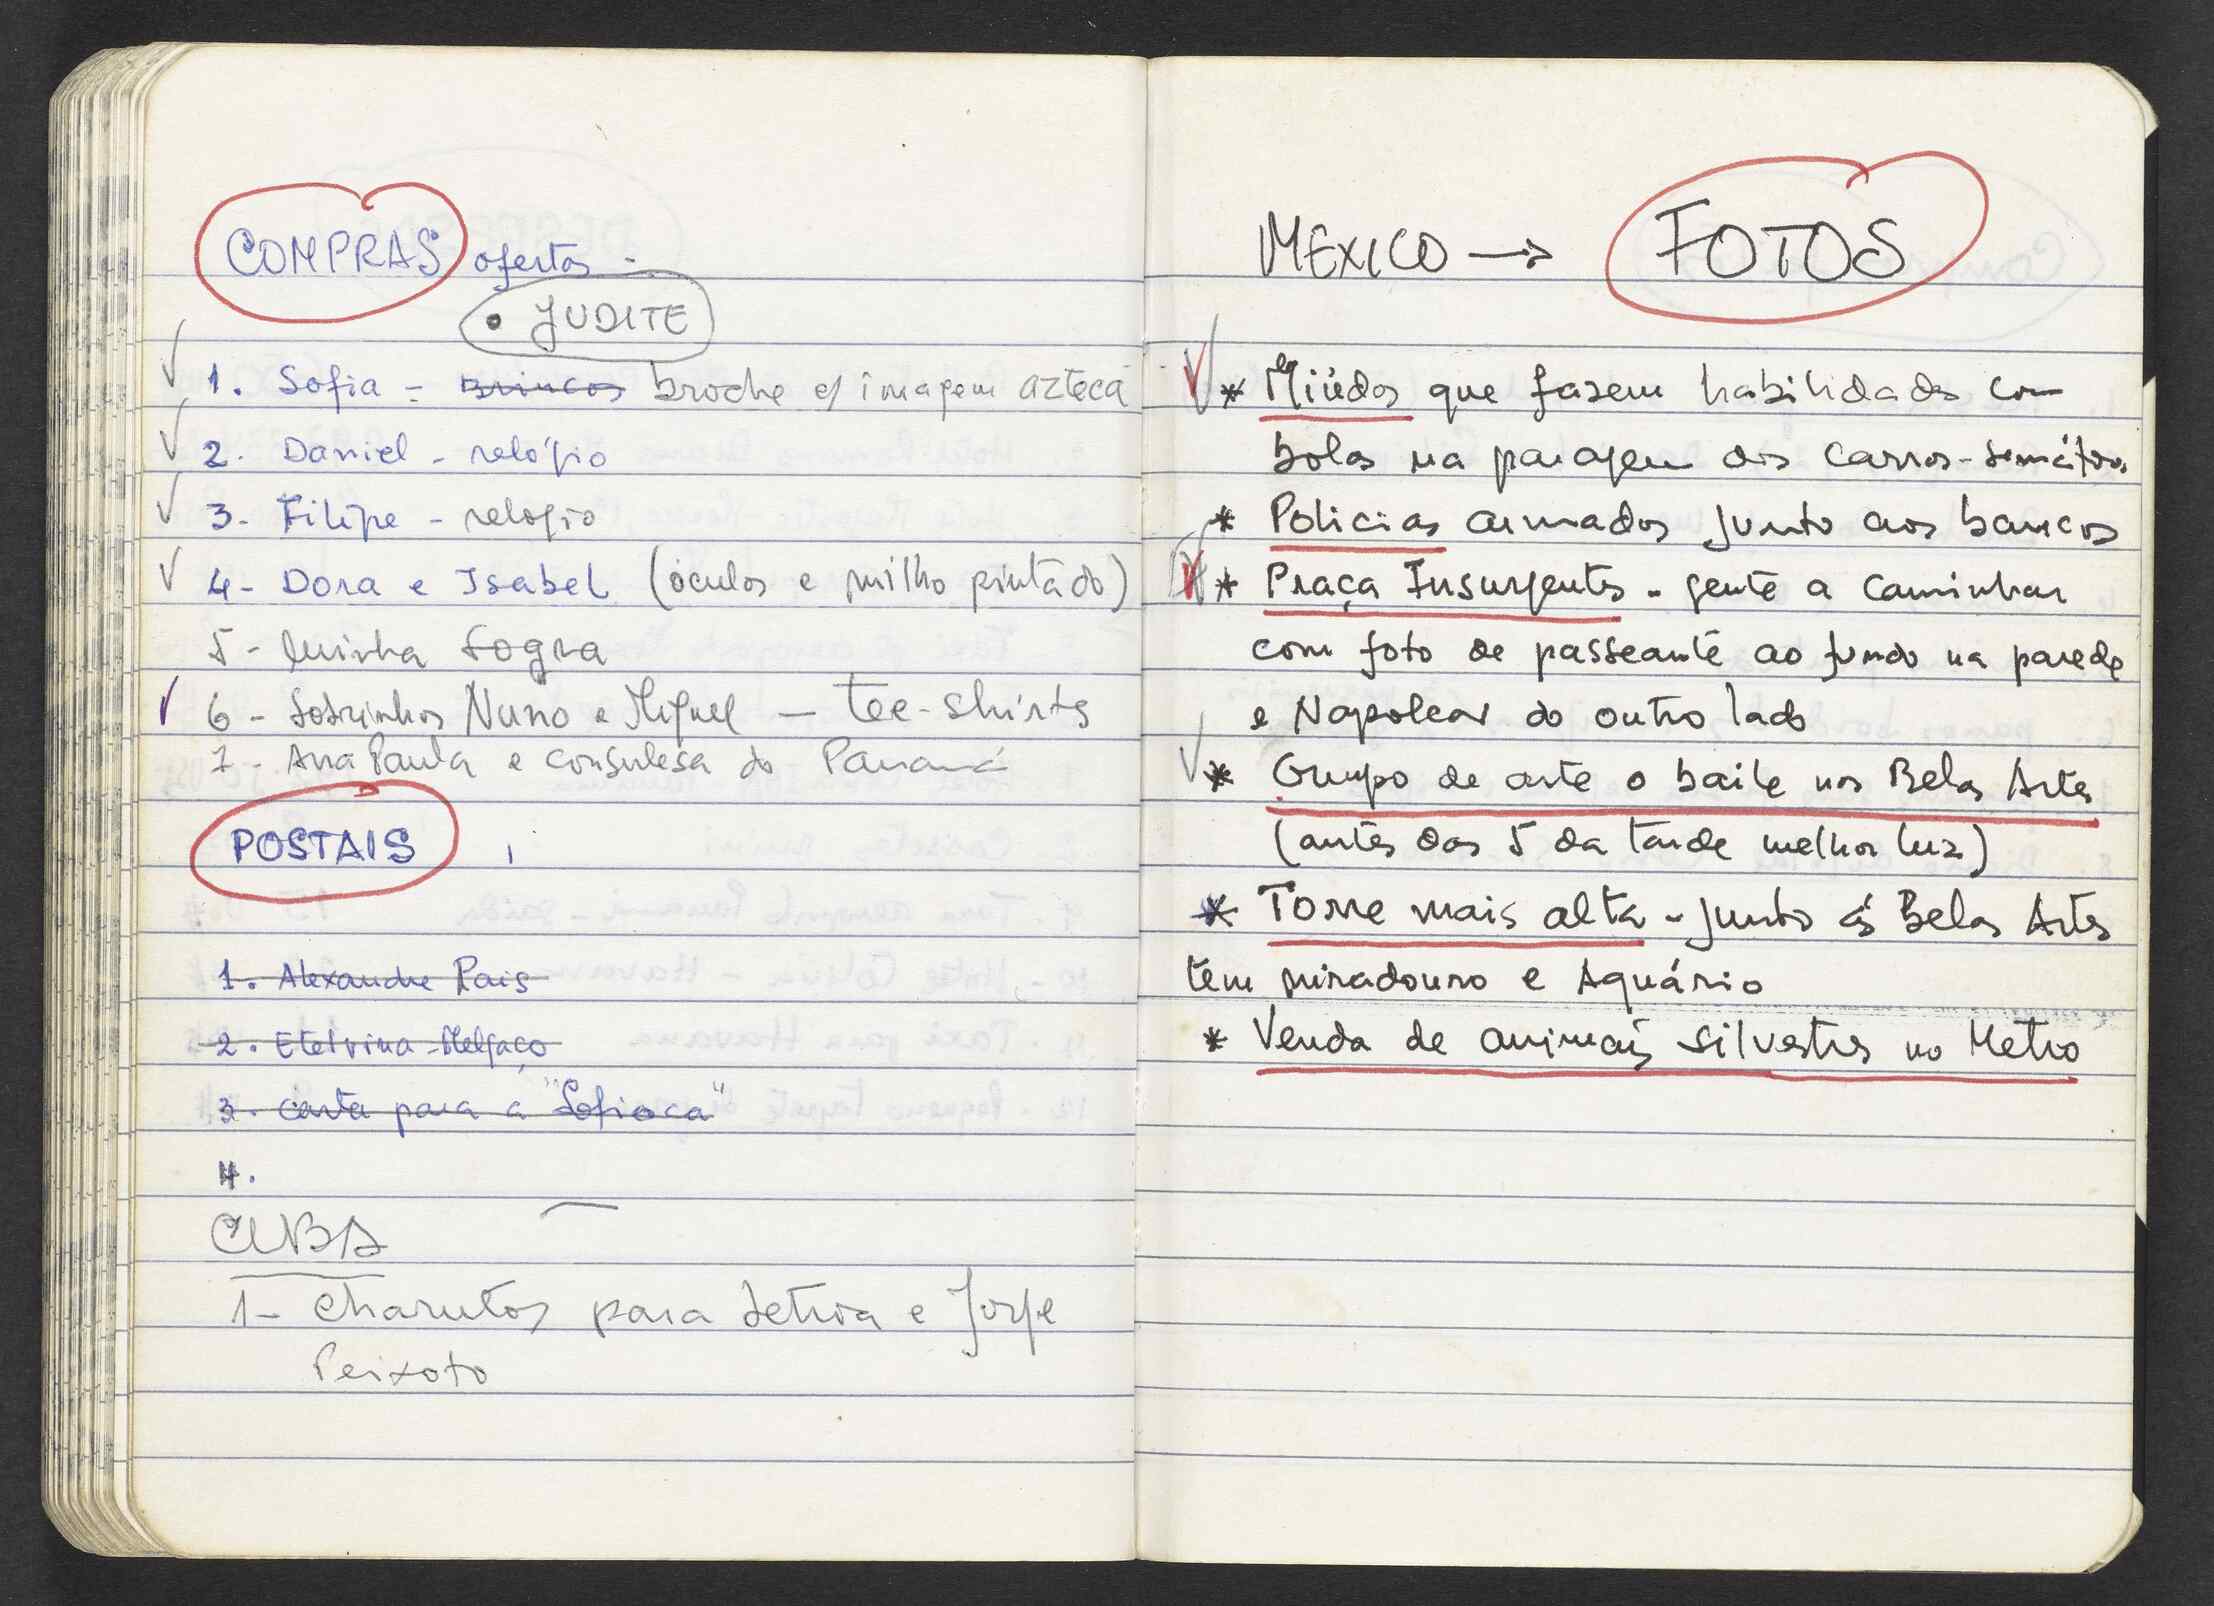 COMPRAS ofertas -
• JUDITE
1. Sofia - brincos broche c/ imagem azteca
2. Daniel - relógio
3- Filipe - relogio
4- Dora e Isabel (óculos e milho pintado)
5- minha sogra
6- Sobrinhos Nuno e Miguel - tee-shirts
7- Ana Paula e consulesa do Panamá
POSTAIS
1. Alexandre Pais
2. Etelvina Melgaço
3. carta para a "Sofioca"
4.
CUBA
1- charutos para e Jorge
Peixoto
MEXICO → FOTOS
* Miúdos que fazem habilidades com
bolas na paragem dos carros-semáforos
* Policias armados junto aos bancos
* Praça Insurgentes - gente a caminhar
com foto de passeante ao fundo na parede
e Napoleão do outro lado
* Grupo de arte o baile nos Belas Artes
(antes das 5 da tarde melhor luz)
* Torre mais alta - junto ás Belas Artes
tem miradouro e Aquário
* Venda de animais silvestres no Metro